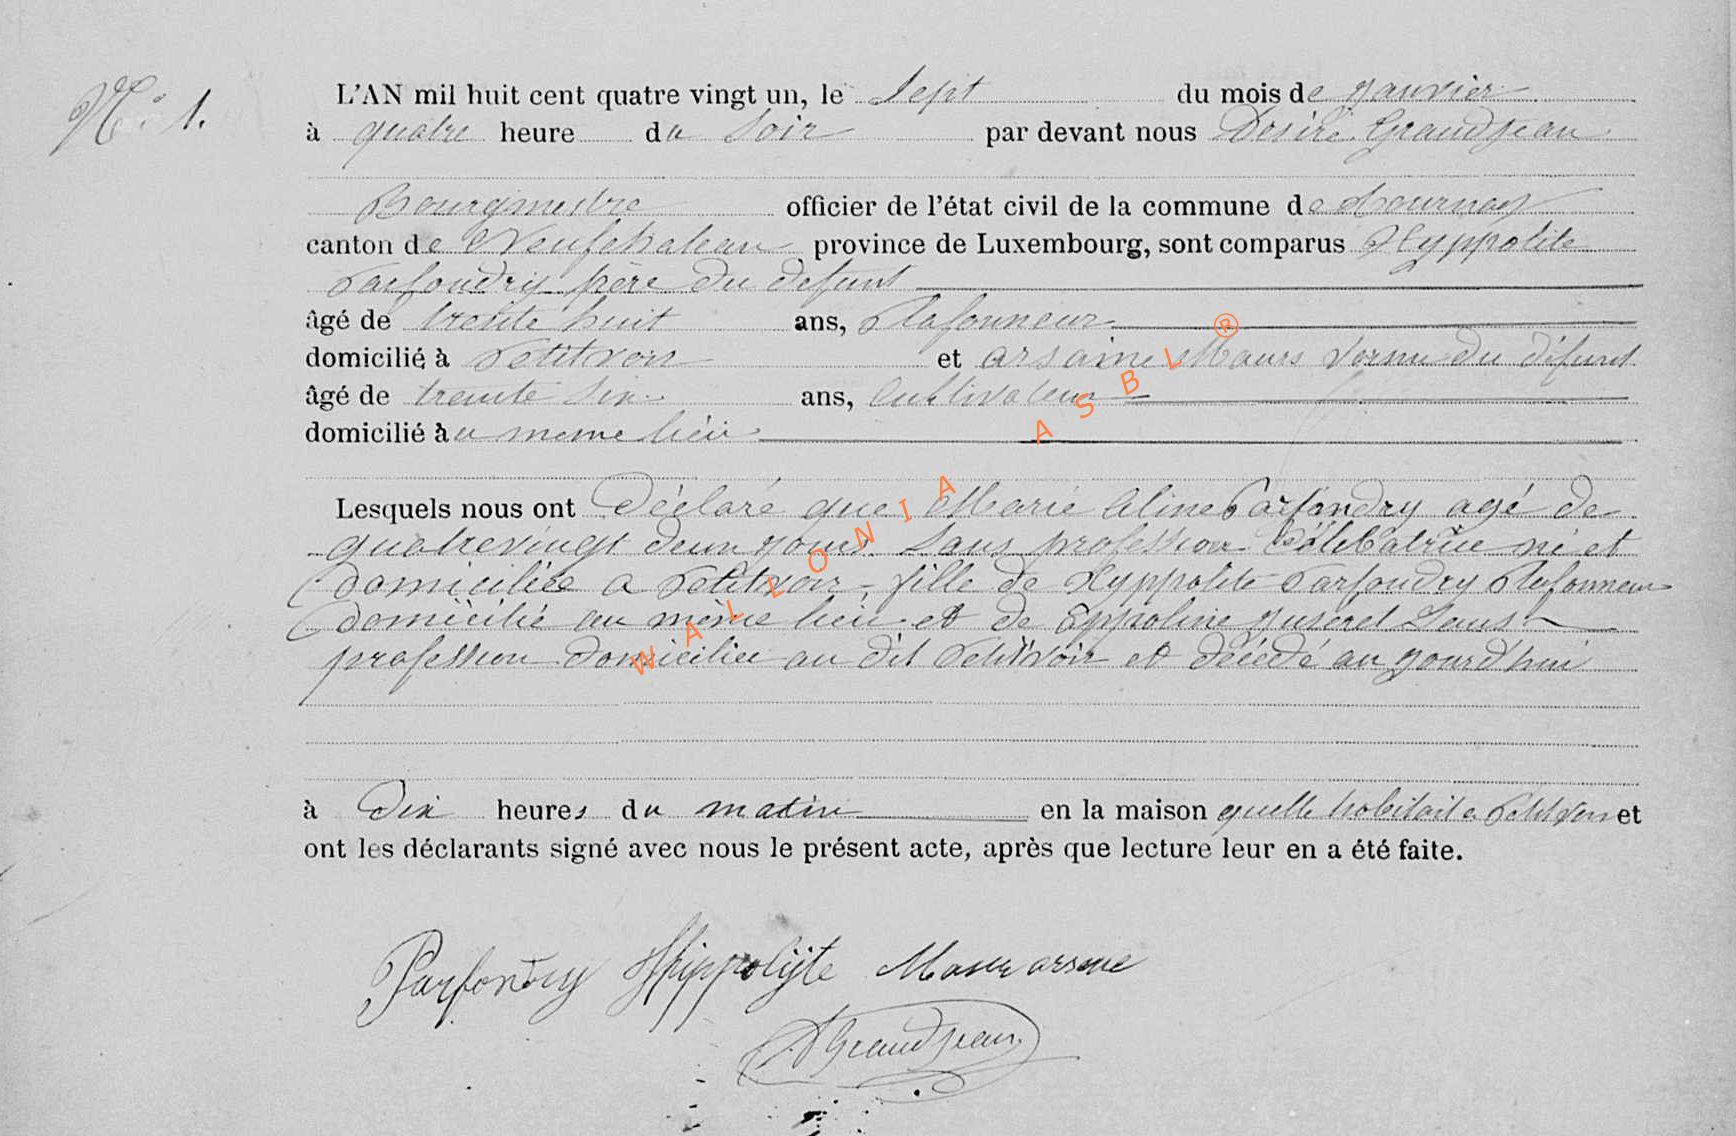 N° 1.
L'AN mil huit cent quatre vingt un, le sept du mois de Janvier
à quatre heure du soir par devant nous Désiré Grandjean
Bourgmestre officier de l'état civil de la commune de Tournay
canton de Neufchateau province de Luxembourg, sont comparus Hyppolite
Parfondry père du défunt
âgé de trente huit ans, Plafonneur
domicilié à Petitvoir et arsaine Maurs du défunt
âgé de trente six ans, Cultivateur
domicilié au meme lieu
Lesquels nous ont Déclaré que Marie Aline Parfondry agé de
quatrevingt deux jours Sans profession Célibatrice né et
domiciliée a Petitvoir, fille de Hyppolite Parfondry Plafonneur
domicilié au même lieu et de Josseret Sans
profession domiciliée au dit Petitvoir et décédé aujourd'hui
à Dix heures du matin en la maison quelle habitait a Petitvoir et
ont les déclarants signé avec nous le présent acte, après que lecture leur en a été faite.
Parfondry Hippolyte Maur arsene
D Grandjean
WALLONIA ASBL ®